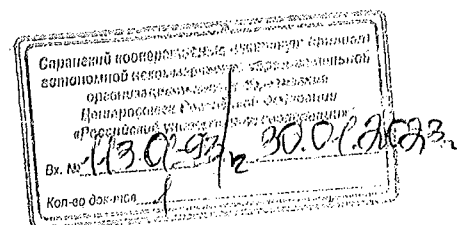 Саранский кооперативный институт (филиал)
автономной некоммерческой образовательной
организации
Центросоюза Российской Федерации
«Российский университет кооперации»
Вх. № 1-13.01-93/ 30.01.2023г.
Кол-во док-тов 1